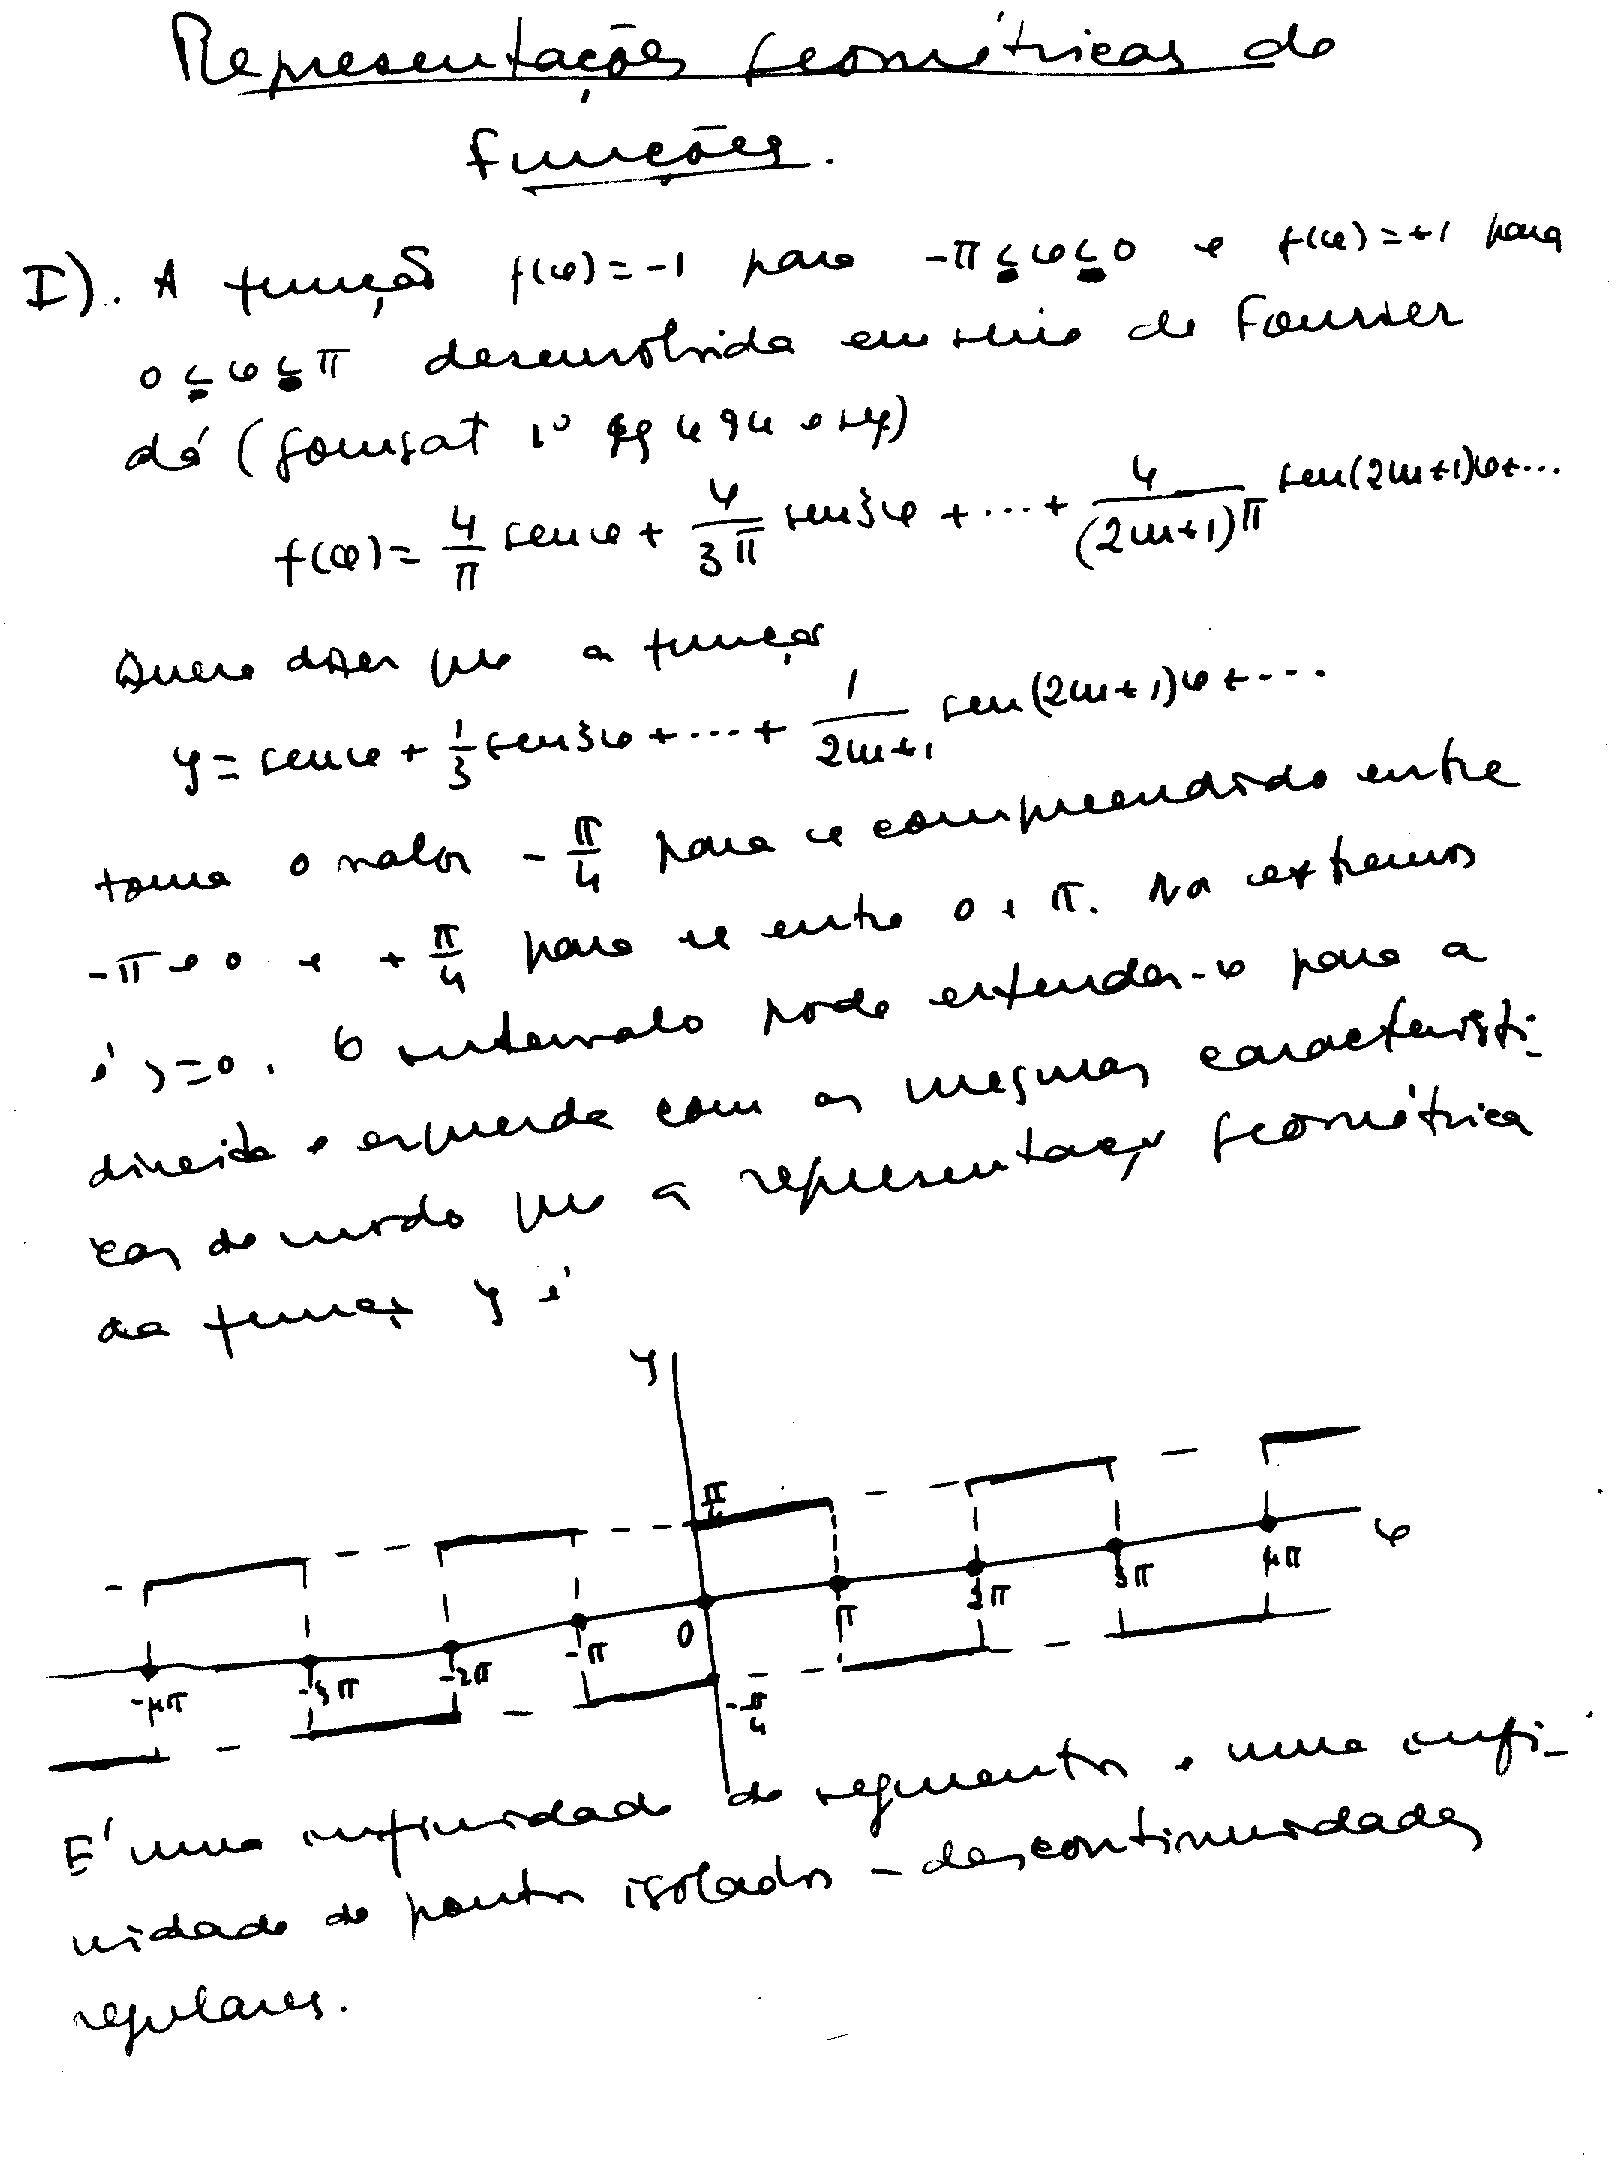 Representações geométricas de
funções.
I). A função f(φ)=-1 para -π≤φ≤0 e f(φ)=+1 para
0≤φ≤π desenvolvida em serie de Fourier
dá (Goursat 1º pg 494 e seg)
f(φ)= 4/π sen φ + 4/3π sen3φ + ... + 4/(2m+1)π sen(2m+1)φ+...
Quere dizer que a função
y= sen φ + 1/3 sen3φ + ... + 1/2m+1 sen(2m+1)φ + ...
toma o valor - π/4 para φ compreendido entre
-π e 0 e + π/4 para φ entre 0 e π. Nos extremos
é y=0. O intervalo pode estender-se para a
direita e esquerda com as mesmas característi-
cas de modo que a representação geométrica
da função y é
y
π/4
φ
-4π -3π -2π -π 0 π 2π 3π 4π
-π/4
E' uma infinidade de segmentos e uma infi-
nidade de pontos isolados - descontinuidades
regulares.